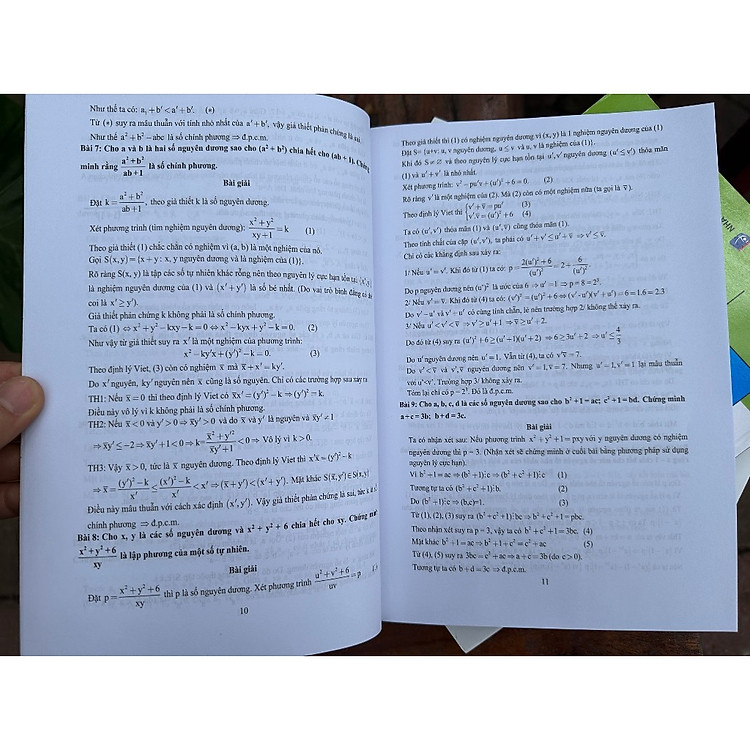 Như thế ta có: a₁ + b' < a' + b'. (*)
Từ (*) suy ra mâu thuẫn với tính nhỏ nhất của a' + b', vậy giả thiết phản chứng là sai.
Như thế a² + b² – abc là số chính phương ⇒ đ.p.c.m.
Bài 7: Cho a và b là hai số nguyên dương sao cho (a² + b²) chia hết cho (ab + 1). Chứng
minh rằng (a² + b²)/(ab + 1) là số chính phương.
Bài giải
Đặt k = (a² + b²)/(ab + 1), theo giả thiết k là số nguyên dương.
Xét phương trình (tìm nghiệm nguyên dương): (x² + y²)/(xy + 1) = k (1)
Theo giả thiết (1) chắc chắn có nghiệm vì (a, b) là một nghiệm của nó.
Gọi S(x, y) = {x + y : x, y nguyên dương và là nghiệm của (1)}.
Rõ ràng S(x, y) là tập các số tự nhiên khác rỗng nên theo nguyên lý cực hạn tồn tại (x', y')
là nghiệm nguyên dương của (1) và (x' + y') là số bé nhất. (Do vai trò bình đẳng có thể
coi là x' ≥ y').
Giả thiết phản chứng k không phải là số chính phương.
Ta có (1) ⇔ x² + y² – kxy – k = 0 ⇔ x² – kyx + y² – k = 0. (2)
Như vậy từ giả thiết suy ra x' là một nghiệm của phương trình:
x² – ky'x + (y')² – k = 0. (3)
Theo định lý Viet, (3) còn có nghiệm x̄ mà x̄ + x' = ky'.
Do x' nguyên, ky' nguyên nên x̄ cũng là số nguyên. Chỉ có các trường hợp sau xảy ra
TH1: Nếu x̄ = 0 thì theo định lý Viet có x̄x' = (y')² – k ⇒ (y')² = k.
Điều này vô lý vì k không phải là số chính phương.
TH2: Nếu x̄ < 0 và y' > 0 ⇒ x̄y' > 0 và do x̄ và y' là nguyên và x̄y' ≠ 1
⇒ x̄y' ≤ –2 ⇒ x̄y' + 1 < 0 ⇒ k = (x̄² + y'²)/(x̄y' + 1) < 0 ⇒ Vô lý vì k > 0.
TH3: Vậy x̄ > 0, tức là x̄ nguyên dương. Theo định lý Viet thì x'x̄ = (y')² – k
⇒ x̄ = ((y')² – k)/x' ≤ ((x')² – k)/x' < x' ⇒ (x̄ + y') < (x' + y'). Mặt khác S(x̄, y') ∈ S(x, y)
Điều này mâu thuẫn với cách xác định (x', y'). Vậy giả thiết phản chứng là sai, tức k là
chính phương ⇒ đ.p.c.m.
Bài 8: Cho x, y là các số nguyên dương và x² + y² + 6 chia hết cho xy. Chứng minh
(x² + y² + 6)/xy là lập phương của một số tự nhiên.
Bài giải
Đặt p = (x² + y² + 6)/xy thì p là số nguyên dương. Xét phương trình (u² + v² + 6)/uv = p
10
Theo giả thiết thì (1) có nghiệm nguyên dương vì (x, y) là 1 nghiệm nguyên dương của (1)
Đặt S = {u+v: u, v nguyên dương, u ≤ v và u, v là nghiệm của (1)}.
Khi đó S ≠ ∅ và theo nguyên lý cực hạn tồn tại u', v' nguyên dương (u' ≤ v') thỏa mãn
(1) và u' + v' là nhỏ nhất.
Xét phương trình: v² – pu'v + (u')² + 6 = 0. (2)
Rõ ràng v' là một nghiệm của (2). Mà (2) còn có một nghiệm nữa (ta gọi là v̄).
Theo định lý Viet thì {v' + v̄ = pu' (3)
v'.v̄ = (u')² + 6 (4)
Ta có (u', v') thỏa mãn (1) và (u', v̄) cũng thỏa mãn (1).
Theo tính chất của cặp (u', v'), ta phải có u' + v' ≤ u' + v̄ ⇒ v' ≤ v̄.
Chỉ có các khả năng sau xảy ra:
1/ Nếu u' = v'. Khi đó từ (1) ta có: p = (2(u')² + 6)/(u')² = 2 + 6/(u')².
Do p nguyên dương nên (u')² là ước của 6 ⇒ u' = 1 ⇒ p = 8 = 2³.
2/ Nếu v' = v̄. Khi đó từ (4) ta có: (v')² = (u')² + 6 ⇔ (v' – u')(v' + u') = 6 = 1.6 = 2.3
Do v' – u' và v' + u' có cùng tính chẵn, lẻ nên trường hợp 2/ không thể xảy ra.
3/ Nếu u' < v' < v̄ ⇒ v' ≥ u' + 1 ⇒ v̄ ≥ u' + 2.
Do đó từ (4) suy ra (u')² + 6 ≥ (u' + 1)(u' + 2) ⇒ 6 ≥ 3u' + 2 ⇒ u' ≤ 4/3
Do u' nguyên dương nên u' = 1. Vẫn từ (4), ta có v'v̄ = 7.
Do v' < v̄ và v', v̄ nguyên dương nên v' = 1, v̄ = 7. Nhưng u' = 1, v' = 1 lại mâu thuẫn
với u' < v'. Trường hợp 3/ không xảy ra.
Tóm lại chỉ có p = 2³. Đó là đ.p.c.m.
Bài 9: Cho a, b, c, d là các số nguyên dương sao cho b² + 1 = ac; c² + 1 = bd. Chứng minh
a + c = 3b; b + d = 3c.
Bài giải
Ta có nhận xét sau: Nếu phương trình x² + y² + 1 = pxy với y nguyên dương có nghiệm
nguyên dương thì p = 3. (Nhận xét sẽ chứng minh ở cuối bài bằng phương pháp sử dụng
nguyên lý cực hạn).
Vì b² + 1 = ac ⇒ (b² + 1) ⋮ c ⇒ (b² + c² + 1) ⋮ c (1)
Tương tự ta có (b² + c² + 1) ⋮ b. (2)
Do (b² + 1) ⋮ c ⇒ (b, c) = 1. (3)
Từ (1), (2), (3) suy ra (b² + c² + 1) ⋮ bc ⇒ b² + c² + 1 = pbc.
Theo nhận xét suy ra p = 3, vậy ta có b² + c² + 1 = 3bc. (4)
Mặt khác b² + 1 = ac ⇒ b² + 1 + c² = c² + ac (5)
Từ (4), (5) suy ra 3bc = c² + ac ⇒ a + c = 3b (do c > 0).
Tương tự ta có b + d = 3c ⇒ đ.p.c.m.
11